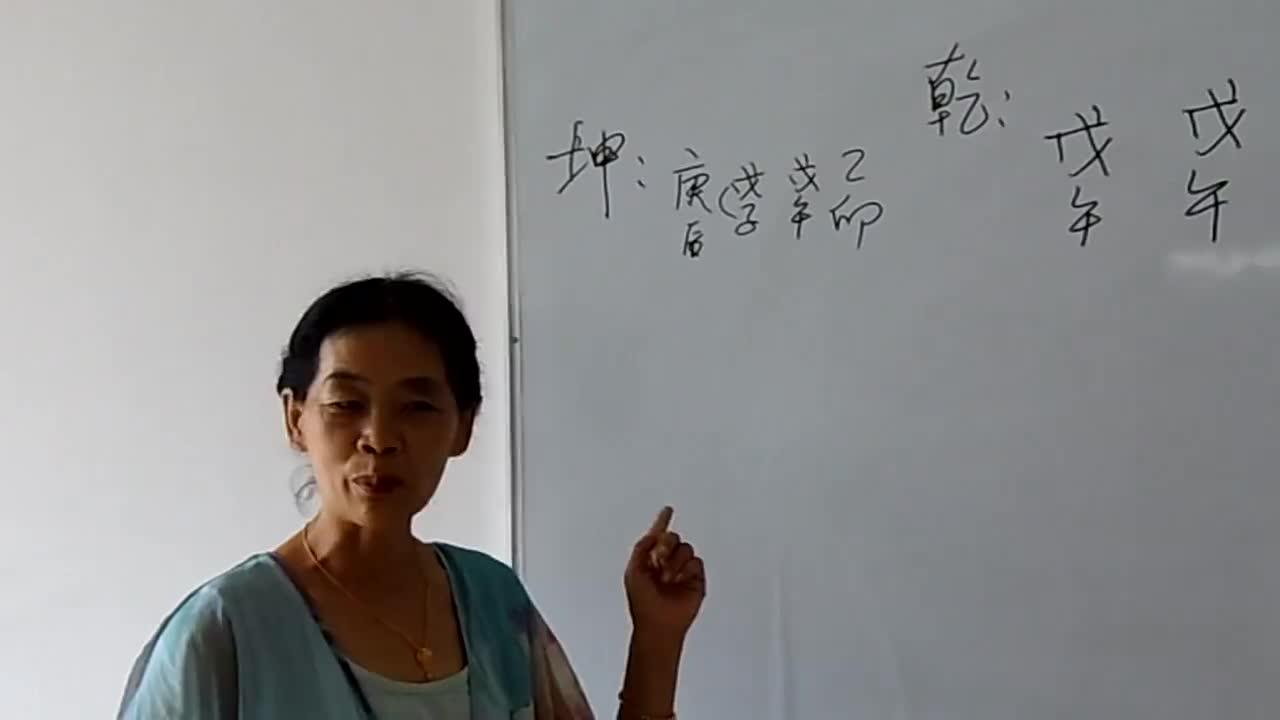 坤： 庚 戊 戊 乙
子 午 卯
乾： 戊 戊
午 午